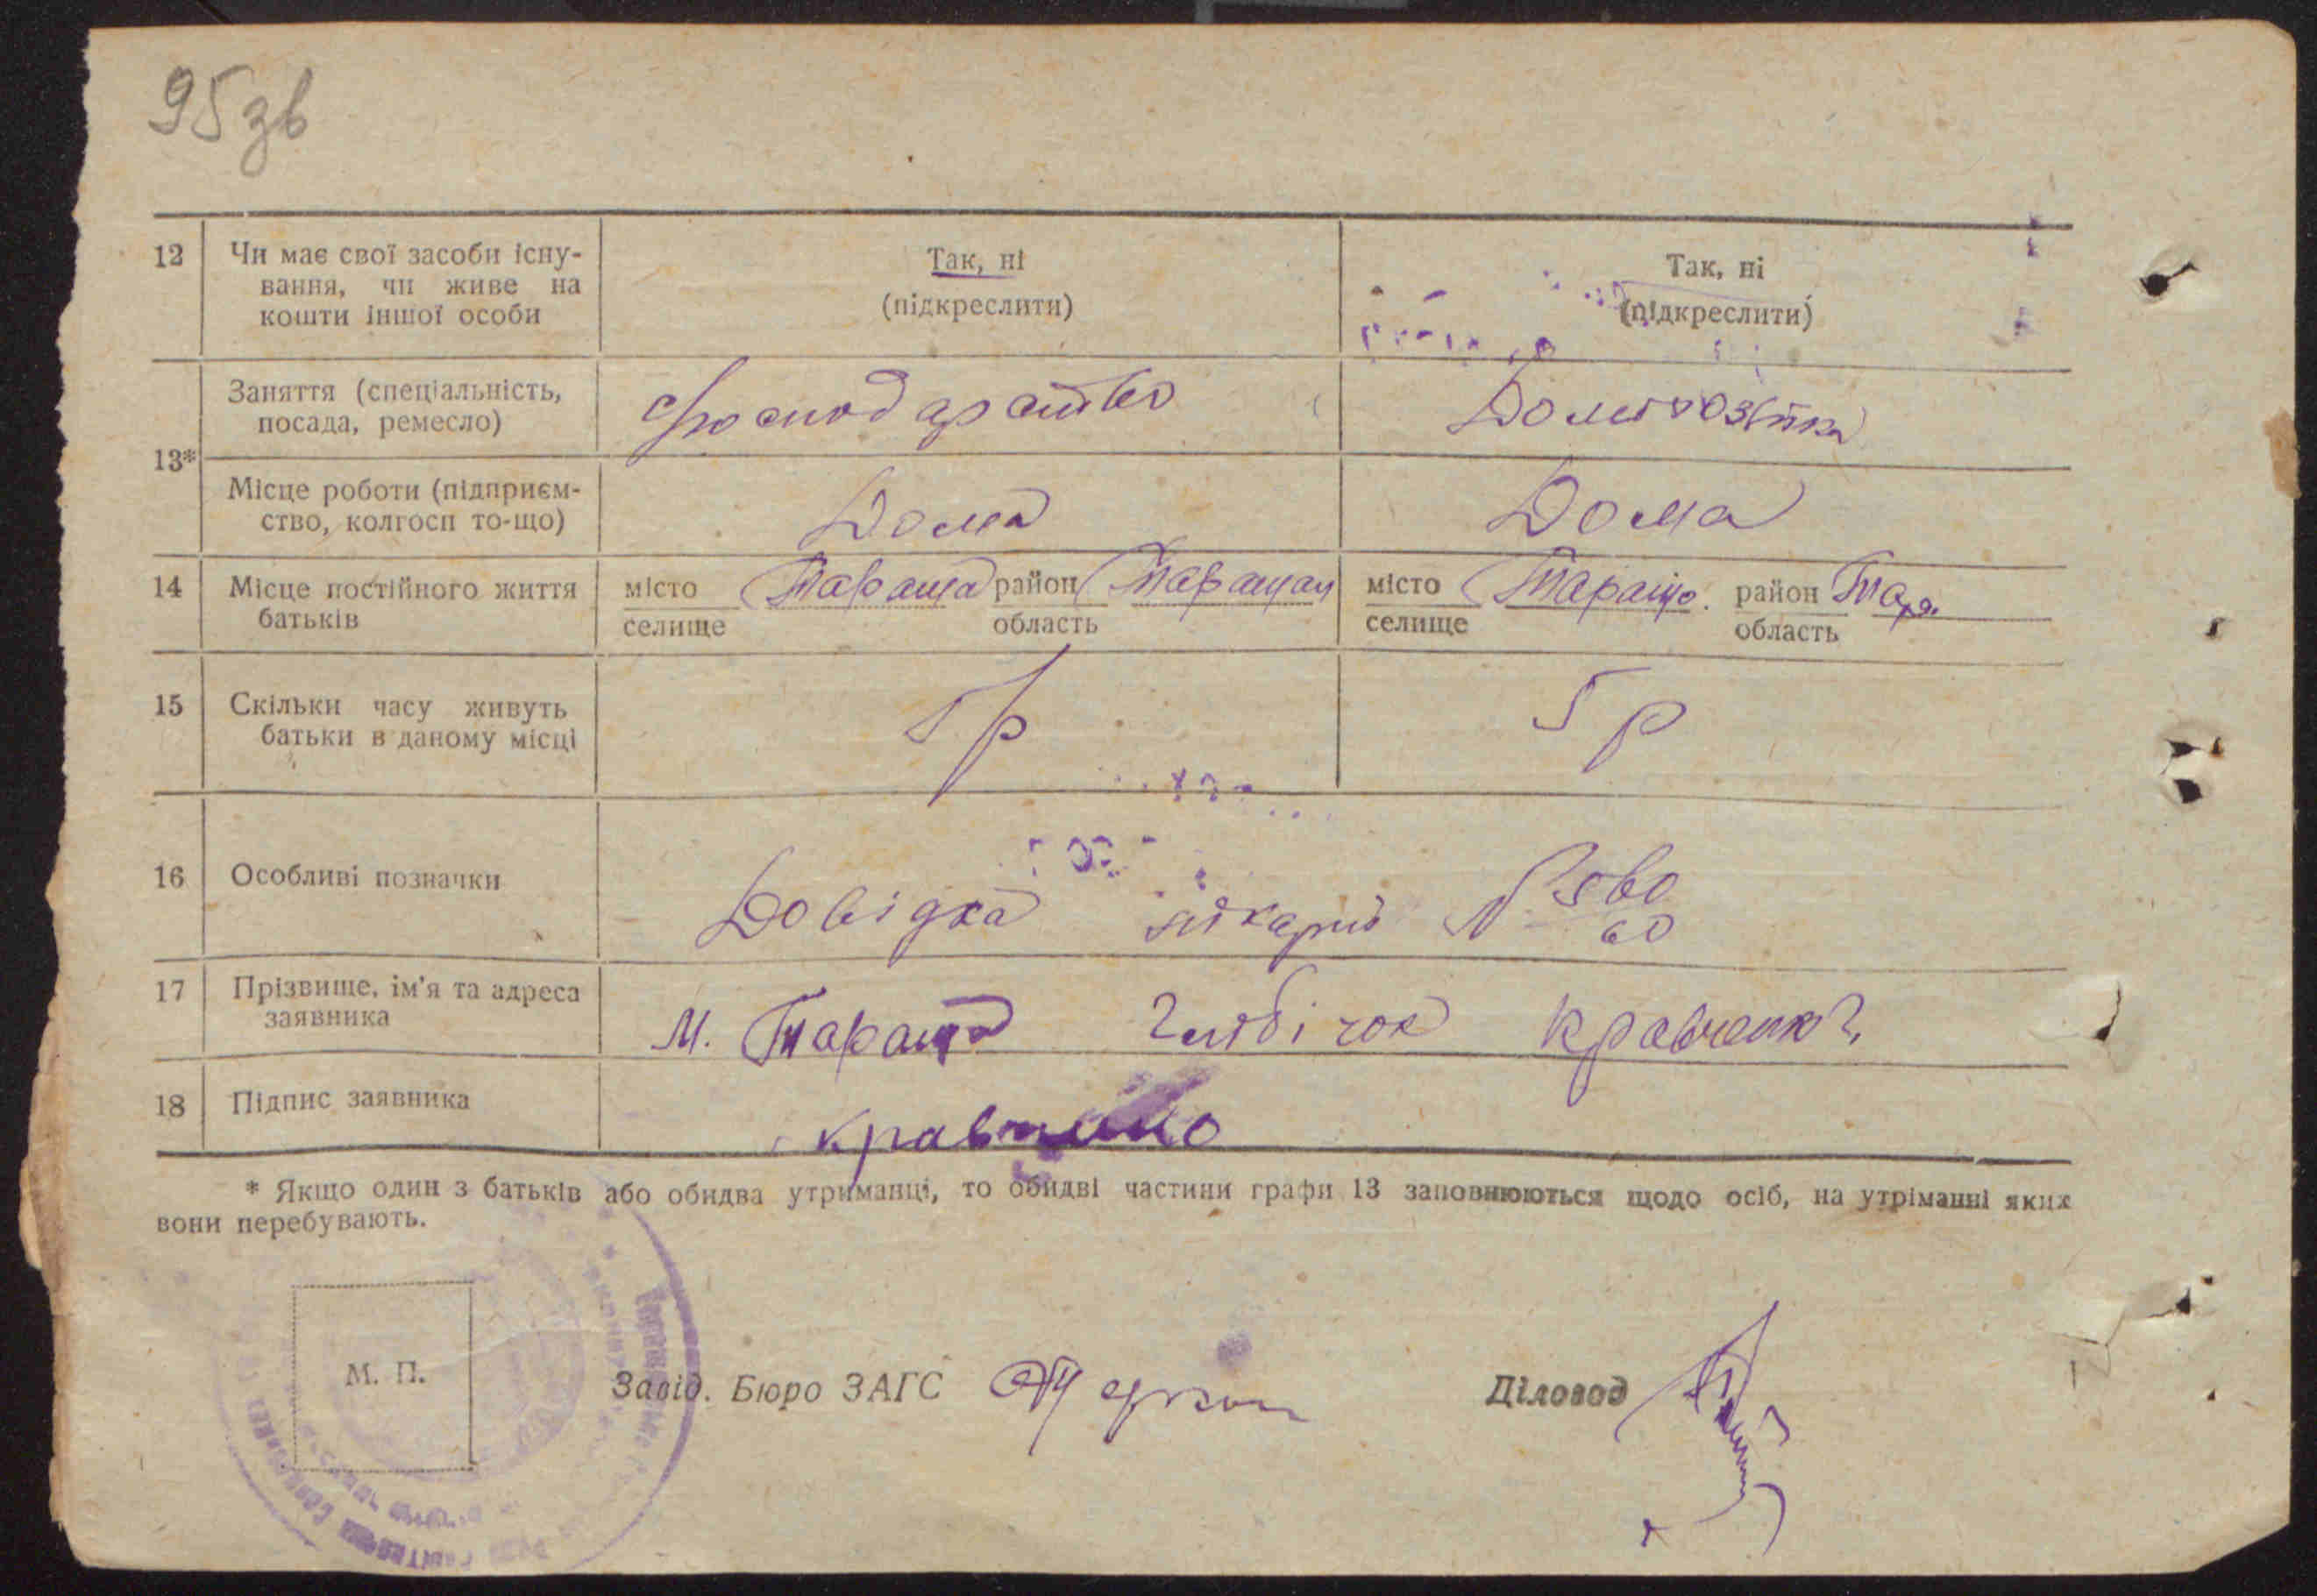 95 зв
12 Чи має свої засоби існу-
вання, чи живе на
кошти іншої особи
Так, ні
(підкреслити)
Так, ні
(підкреслити)
13*
Заняття (спеціальність,
посада, ремесло)
Господарство
Домогозяйка
Місце роботи (підприєм-
ство, колгосп то-що)
Дома
Дома
14 Місце постійного життя
батьків
місто Тараща район Таращан
селище область
місто Тараща район Тара.
селище область
15 Скільки часу живуть
батьки в даному місці
5 р
16 Особливі позначки
Довідка лікарні №
60
17 Прізвище, ім'я та адреса
заявника
м. Тараща Кравченко
18 Підпис заявника
Кравченко
* Якщо один з батьків або обидва утриманці, то обидві частини графи 13 заповнюються щодо осіб, на утріманні яких
вони перебувають.
М. П.
Завід. Бюро ЗАГС
Діловод